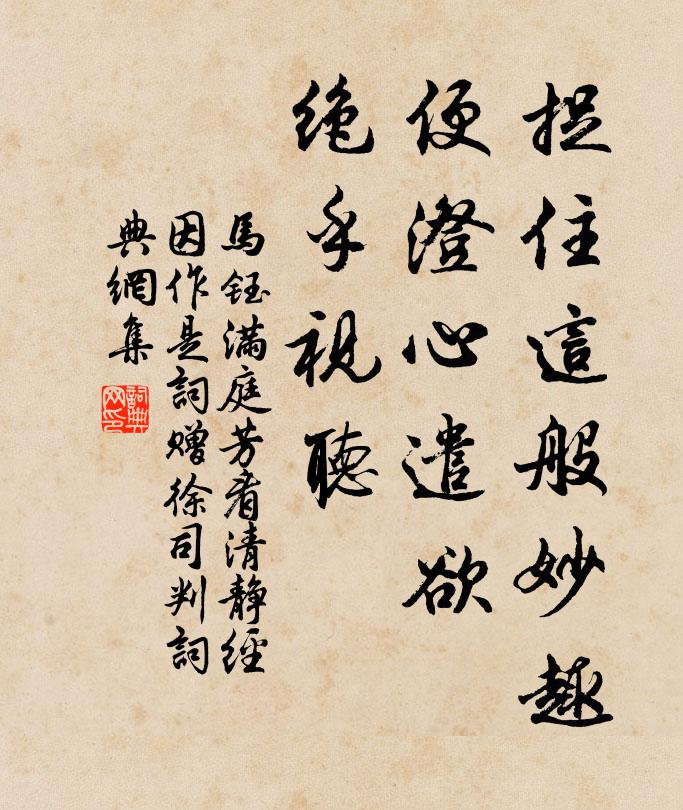 捉住這般妙趣
便澄心遣欲
絶乎視聽
馬鈺滿庭芳看清静經
因作是詞贈徐司判詞
典網集
詞典
网印